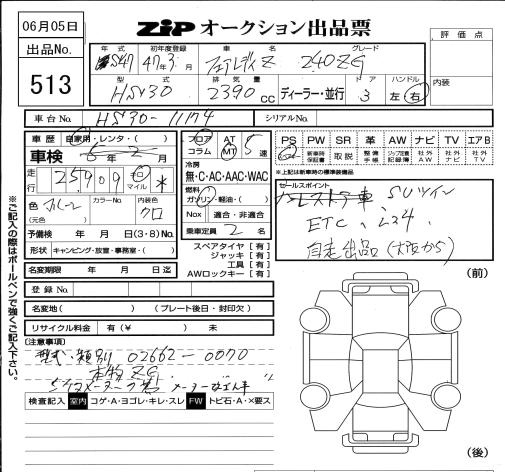 06月05日
ZIP オークション出品票
出品No.
513
評価点
内装
年式 初年度登録 車名 グレード
S47 47年3月 フェアレディZ 240ZG
型式 排気量 ドア ハンドル
HS30 2390cc ディーラー・並行 3 左・右
車台No. HS30-11174 シリアルNo.
車歴 自家用・レンタ・( )
車検 年 月
走行 25909 マイル
色 (元色)
カラーNo. 内装色 クロ
予備検 年 月 日(3・8)No.
形状 キャンピング・放室・事務室・( )
名変期限 年 月 日迄
フロア AT
コラム MT 5速
冷房
無・C・AC・AAC・WAC
燃料
ガソリン・軽油・( )
Nox 適合・非適合
乗車定員 2名
スペアタイヤ[有]
ジャッキ[有]
工具[有]
AWロックキー[有]
PS PW SR 革 AW ナビ TV エアB
新車時保証書 取説 整備手帳 記録簿 社外AW 社外ナビ 社外TV
※上記は新車時の標準装備品
セールスポイント
レストア車 SUツイン
ETC、L34
自走出品(大阪から)
登録No.
名変地( ) (プレート後日・封印欠)
リサイクル料金 有(¥ ) 未
[注意事項]
型式・類別 02662-0070
本物ZG
5マイメーター
検査記入 室内 コゲ・A・ヨゴレ・キレ・スレ FW トビ石・A・×要ス
(前)
(後)
※ご記入の際はボールペンで強くご記入下さい。